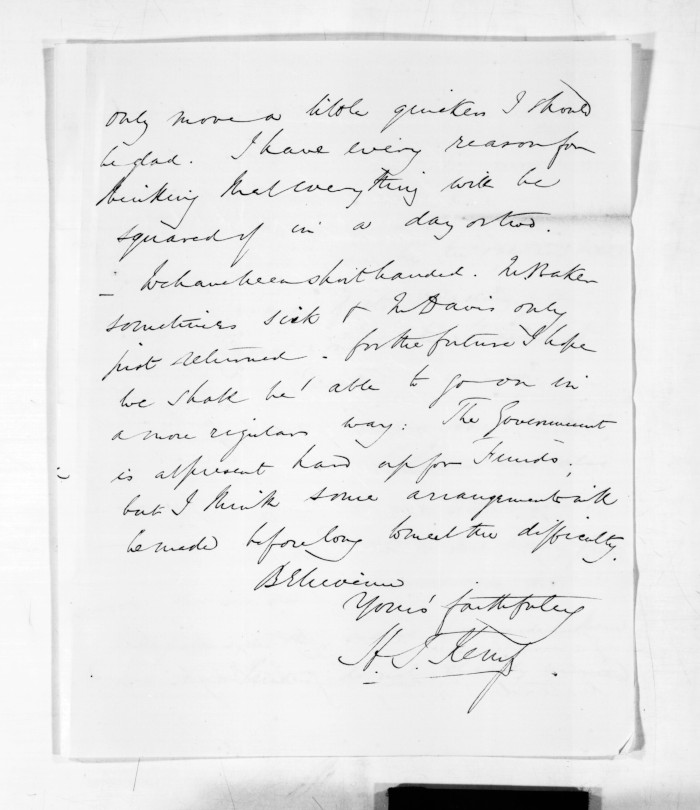 only move a little quicker I should
be glad. I have every reason for
thinking that everything will be
squared up in a day or two.
We have been short handed. Mr Baker
sometimes sick & Mr Davis only
just returned - for the future I hope
we shall be able to go on in
a more regular way: The Government
is at present hard up for Funds;
but I think some arrangement will
be made before long to meet the difficulty.
Believe me
Yours faithfully
H. T. Kemp